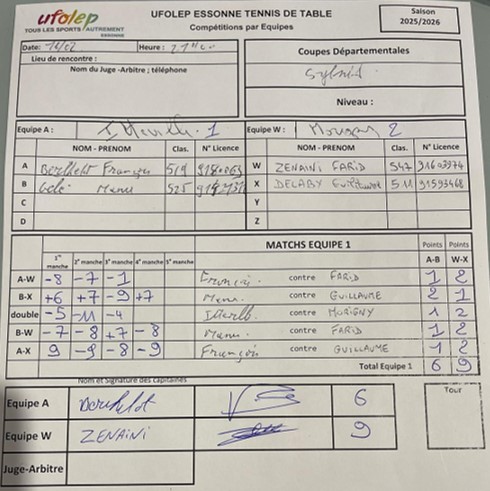 ufolep
TOUS LES SPORTS AUTREMENT
ESSONNE
UFOLEP ESSONNE TENNIS DE TABLE
Compétitions par Equipes
Saison
2025/2026
Date: Heure : 21H00
Lieu de rencontre :
Nom du Juge-Arbitre ; téléphone
Coupes Départementales
Niveau :
Equipe A : Itteville 1
Equipe W : 2
NOM - PRENOM Clas. N° Licence
NOM - PRENOM Clas. N° Licence
A Berthelot François 519
W ZENAINI FARID 547 91603974
B Manu 525
X DELABY Guillaume 511 91593468
C
Y
D
Z
1ère manche 2e manche 3e manche 4e manche 5e manche
MATCHS EQUIPE 1
Points A-B
Points W-X
A-W -8 -7 -1 François contre FARID 1 2
B-X +6 +7 -9 +7 Manu contre GUILLAUME 2 1
double -5 -11 -4 Itteville contre MORIGNY 1 2
B-W -7 -8 +7 -8 Manu contre FARID 1 2
A-X 9 -9 -8 -9 François contre GUILLAUME 1 2
Total Equipe 1 6 9
Nom et Signature des capitaines
Equipe A Berthelot 6
Equipe W ZENAINI 9
Juge-Arbitre
Tour